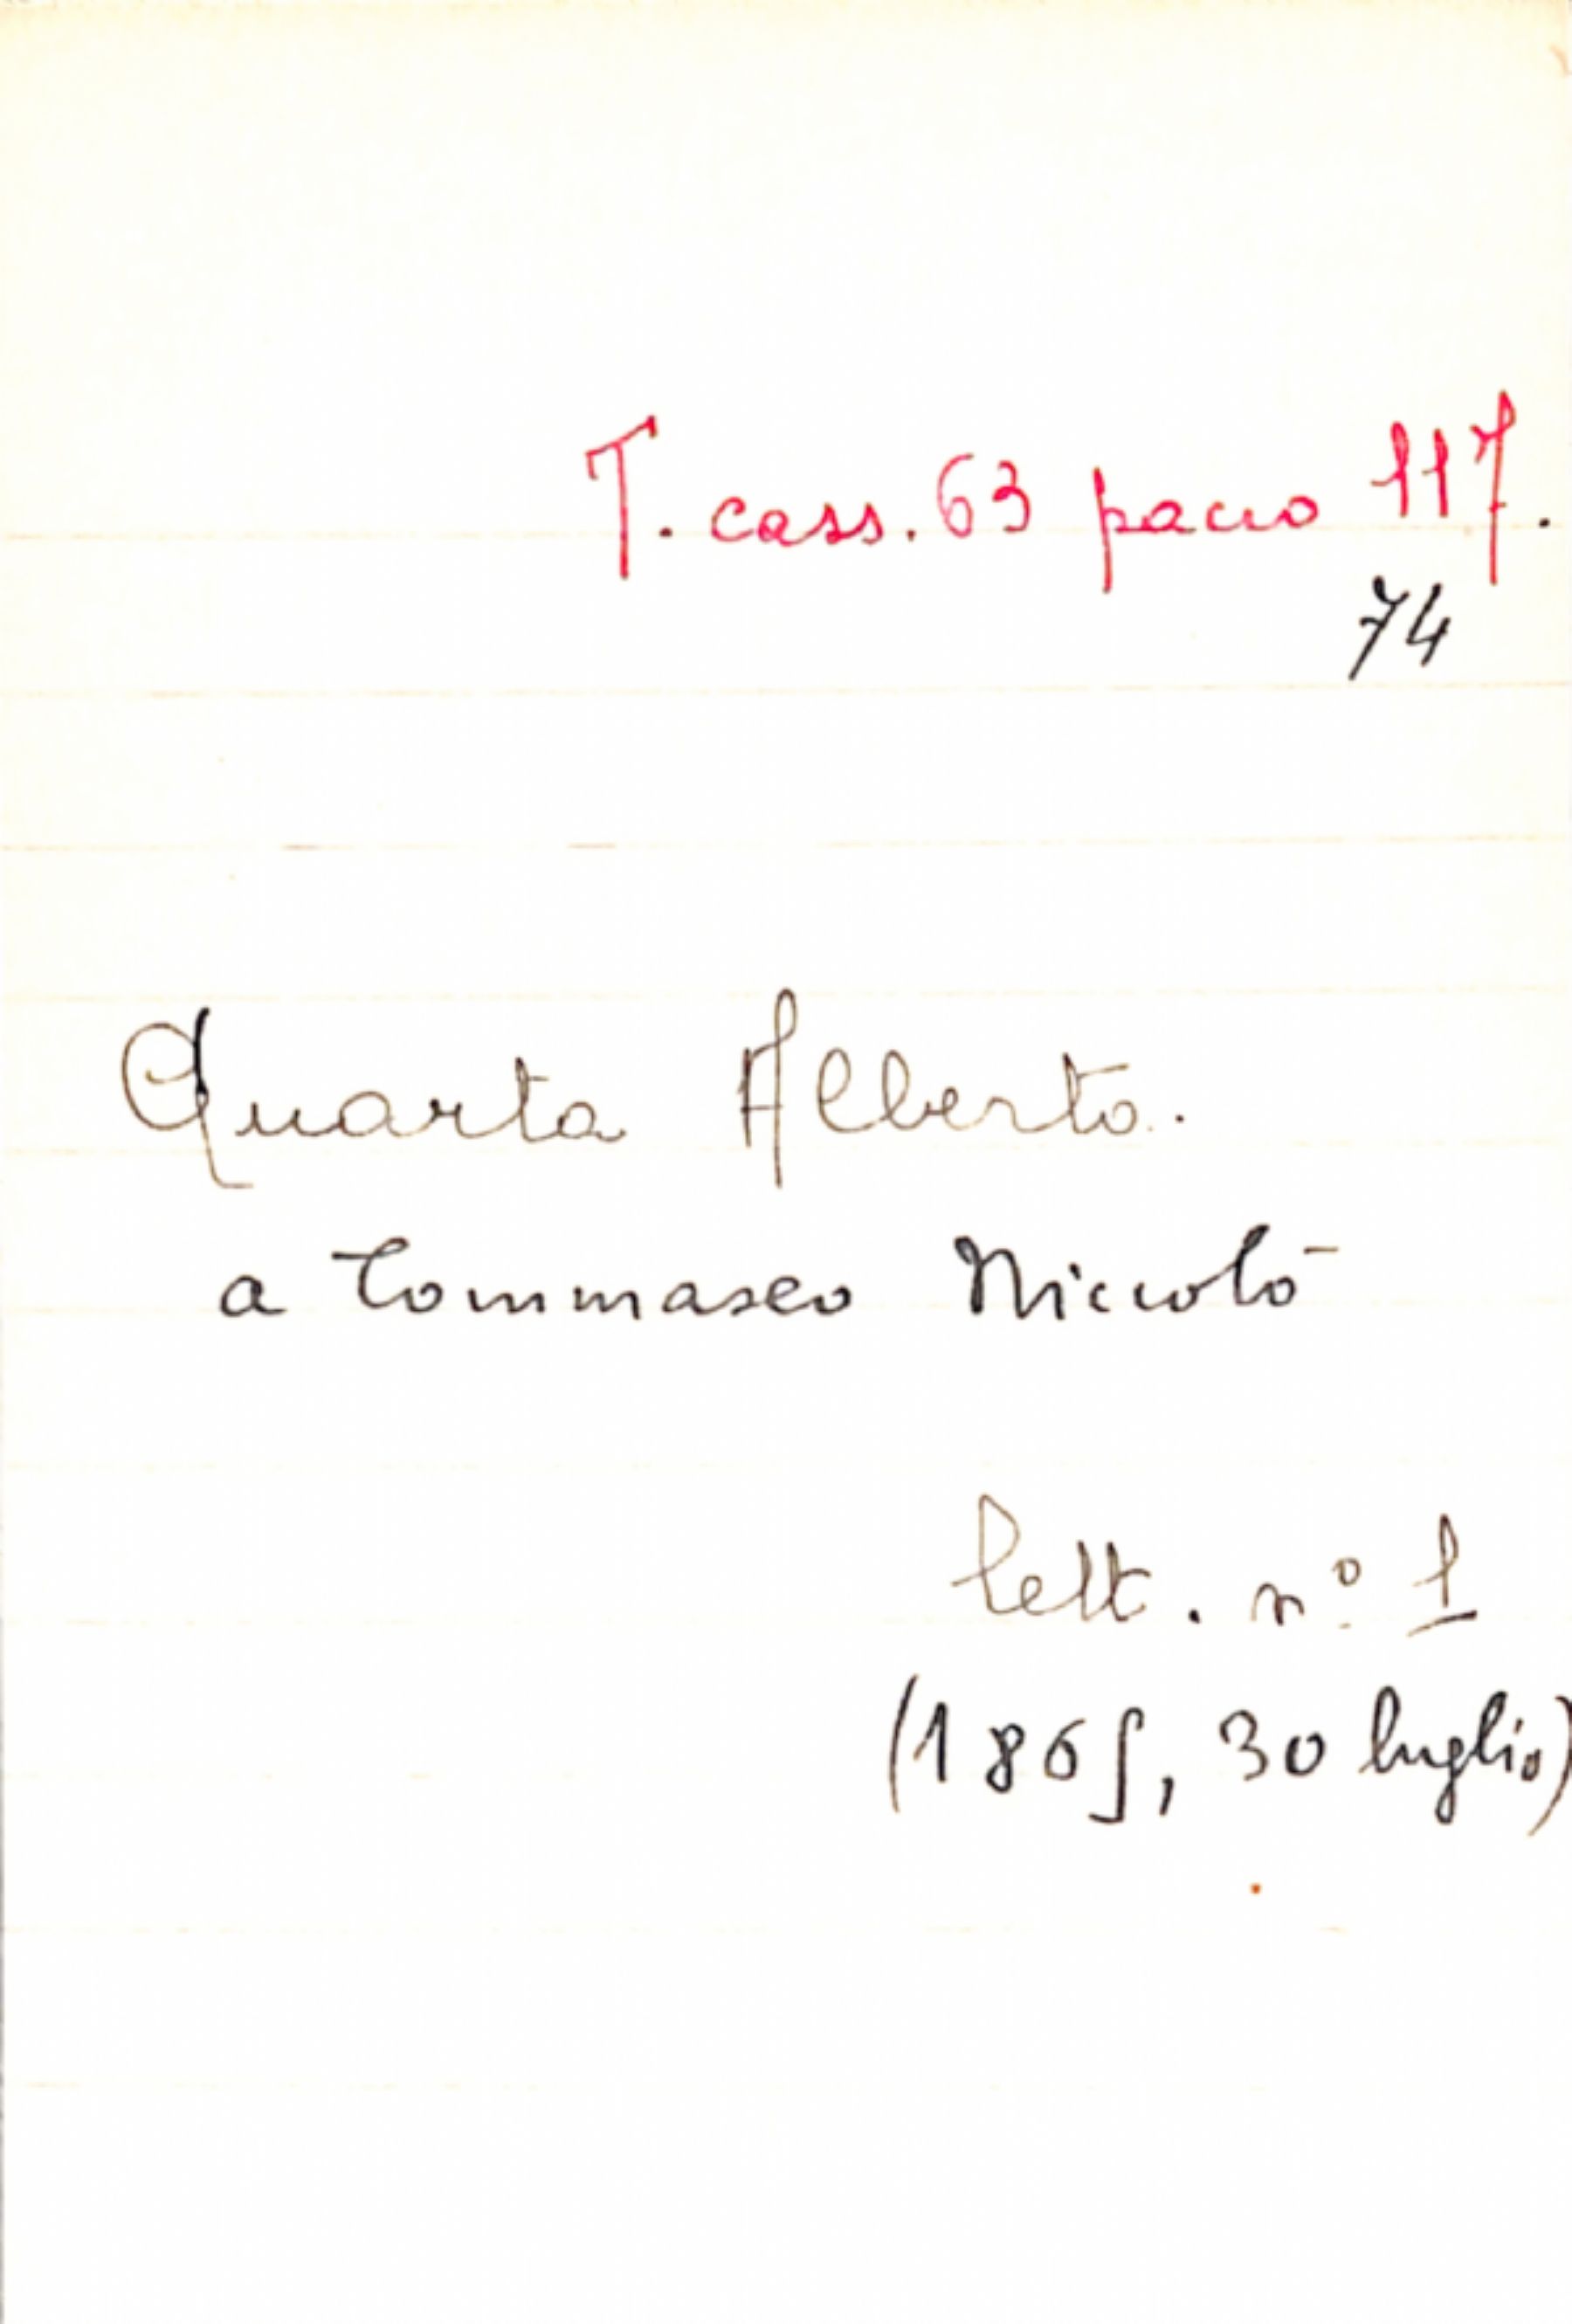 T. cass. 63 pacco 117.
74
Quarta Alberto.
a Tommaseo Niccolò
lett. nº 1
(1865, 30 luglio)